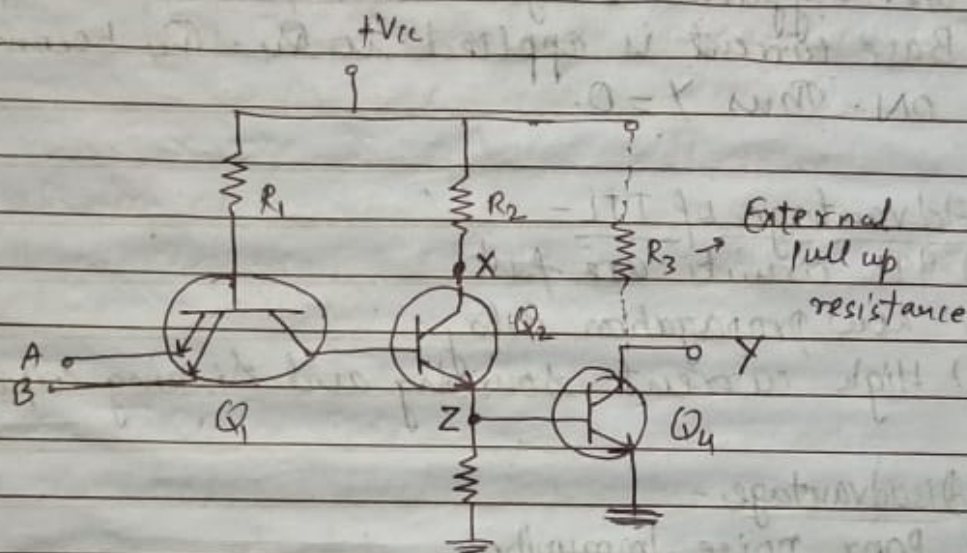 +Vcc
R1
R2
X
R3 → External
pull up
resistance
A
B
Q1
Q2
Y
Z
Q4